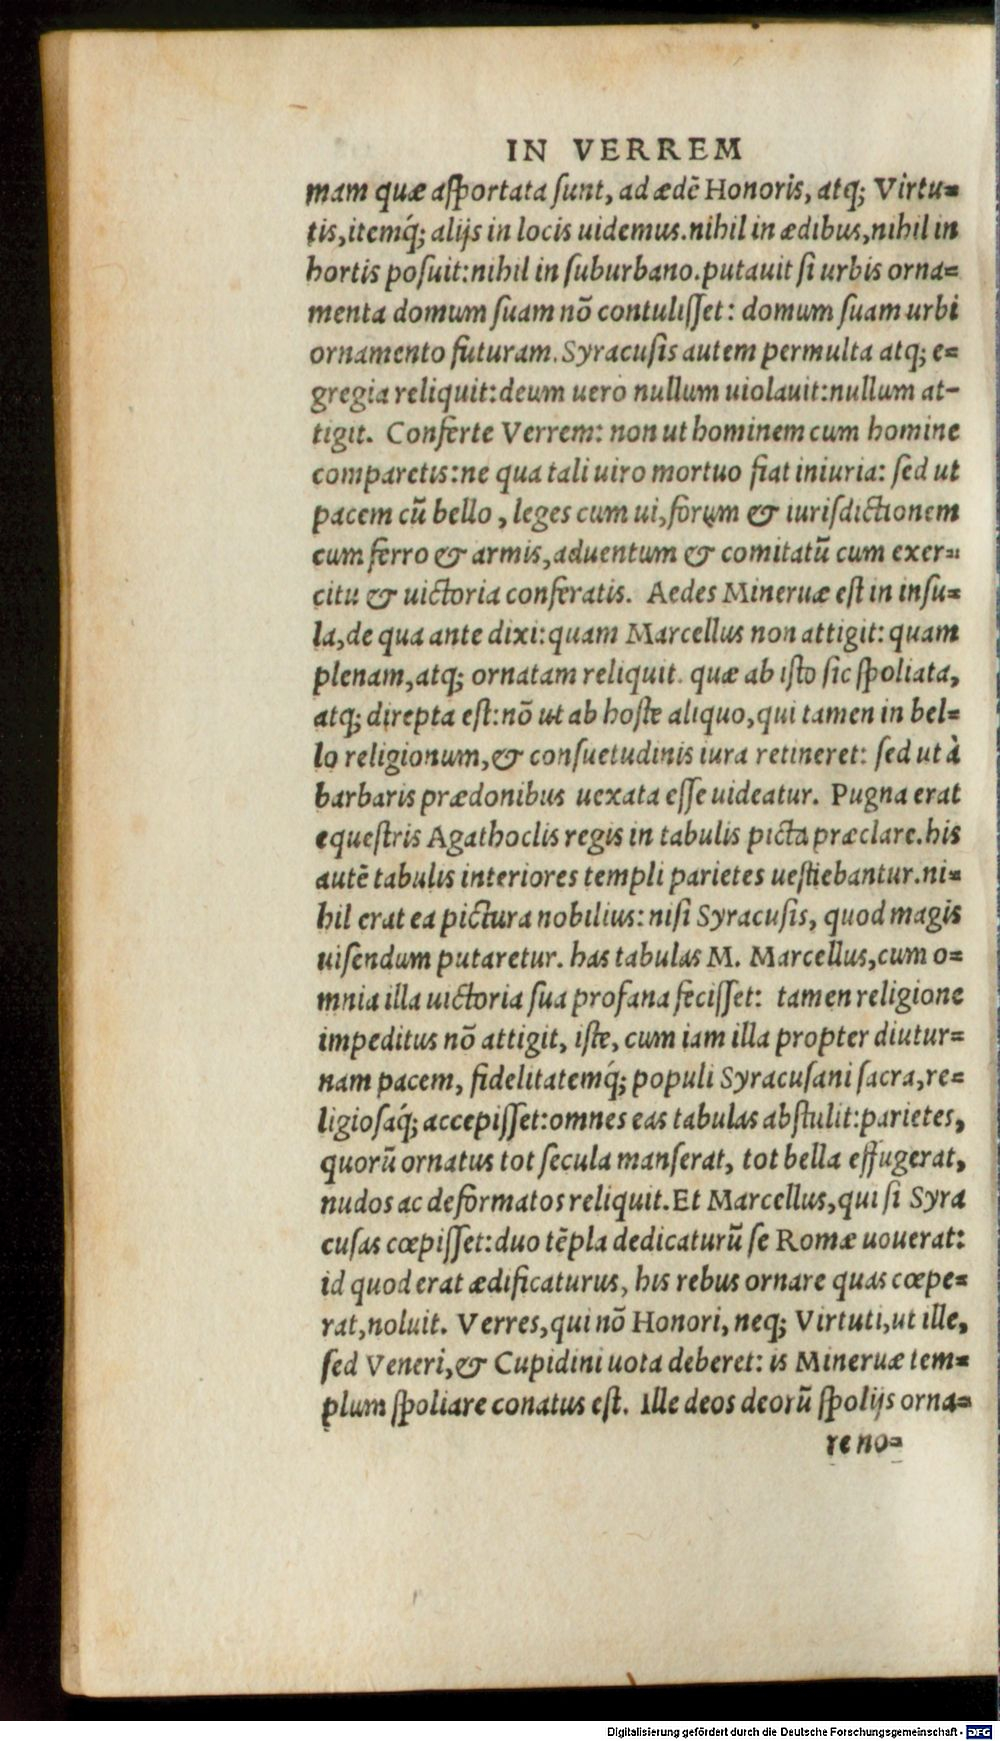 IN VERREM
mam quæ aſportata ſunt, ad ædē Honoris, atq; Virtu=
tis, itemq́; alijs in locis uidemus. nihil in ædibus, nihil in
hortis poſuit: nihil in ſuburbano. putauit ſi urbis orna=
menta domum ſuam nō contuliſſet: domum ſuam urbi
ornamento futuram. Syracuſis autem permulta atq; e=
gregia reliquit: deum uero nullum uiolauit: nullum at-
tigit. Conferte Verrem: non ut hominem cum homine
comparetis: ne qua tali uiro mortuo fiat iniuria: ſed ut
pacem cū bello, leges cum ui, forum & iuriſdictionem
cum ferro & armis, aduentum & comitatū cum exer=
citu & uictoria conferatis. Aedes Mineruæ eſt in inſu=
la, de qua ante dixi: quam Marcellus non attigit: quam
plenam, atq; ornatam reliquit. quæ ab iſto ſic ſpoliata,
atq; direpta eſt: nō ut ab hoſte aliquo, qui tamen in bel=
lo religionum, & conſuetudinis iura retineret: ſed ut à
barbaris prædonibus uexata eſſe uideatur. Pugna erat
equeſtris Agathoclis regis in tabulis picta præclare. his
autē tabulis interiores templi parietes ueſtiebantur. ni=
hil erat ea pictura nobilius: niſi Syracuſis, quod magis
uiſendum putaretur. has tabulas M. Marcellus, cum o=
mnia illa uictoria ſua profana feciſſet: tamen religione
impeditus nō attigit, iſte, cum iam illa propter diutur=
nam pacem, fidelitatemq́; populi Syracuſani ſacra, re=
ligioſaq́; accepiſſet: omnes eas tabulas abſtulit: parietes,
quorū ornatus tot ſecula manſerat, tot bella effugerat,
nudos ac deformatos reliquit. Et Marcellus, qui ſi Syra
cuſas cœpiſſet: duo tēpla dedicaturū ſe Romæ uouerat:
id quod erat ædificaturus, his rebus ornare quas cœpe=
rat, noluit. Verres, qui nō Honori, neq; Virtuti, ut ille,
ſed Veneri, & Cupidini uota deberet: is Mineruæ tem=
plum ſpoliare conatus eſt. Ille deos deorū ſpolijs orna=
re no=
Digitalisierung gefördert durch die Deutsche Forschungsgemeinschaft - DFG